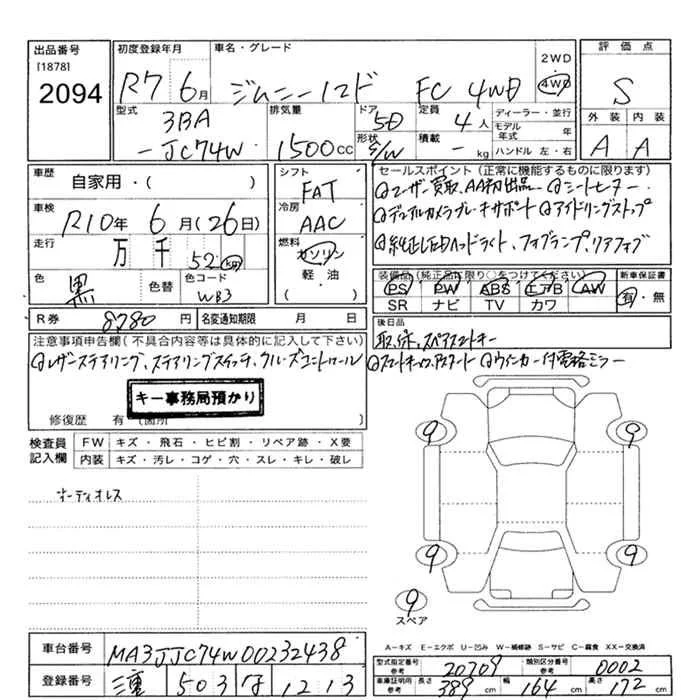 出品番号 [1878] 2094
初度登録年月 R7 6月
車名・グレード ジムニーノマド FC 4WD
2WD 4WD
評価点 S
外装 A 内装 A
型式 3BA-JC74W
排気量 1500cc
ドア 5D 形状 S/W
定員 4人 積載 - kg
ディーラー・並行
モデル年式 年
ハンドル 左・右
車歴 自家用・( )
車検 R10年 6月(26日)
走行 万 千 52 km
色 黒 色替 色コード WB3
シフト FAT
冷房 AAC
燃料 ガソリン 軽・油 ( )
セールスポイント(正常に機能するものに限ります)
◎ユーザー買取、AA初出品 ◎シートヒーター
◎デュアルカメラブレーキサポート ◎アイドリングストップ
◎純正LEDヘッドライト、フォグランプ、リアフォグ
装備品(純正品に限り○をつけてください)
PS PW ABS エアB AW
SR ナビ TV カワ
新車保証書 有・無
R券 8780円 名変通知期限 月 日
後日品
取、保、スペアスマートキー
注意事項申告欄(不具合内容等は具体的に記入して下さい)
◎レザーステアリング、ステアリングスイッチ、クルーズコントロール
◎スマートキー、P.スタート ◎ウィンカー付電格ミラー
キー事務局預かり
修復歴 有(箇所 )
検査員記入欄
FW キズ・飛石・ヒビ割・リペア跡・X要
内装 キズ・汚レ・コゲ・穴・スレ・キレ・破レ
オーディオレス
9 9
9 9
9
スペア
A=キズ E=エクボ U=凹み W=補修跡 S=サビ C=腐食 XX=交換済
車台番号 MA3JJC74W00232438
登録番号 三重 503 な 1213
型式指定番号 参考 20709 類別区分番号 参考 0002
車庫証明用参考 長さ 389cm 幅 164cm 高さ 172cm